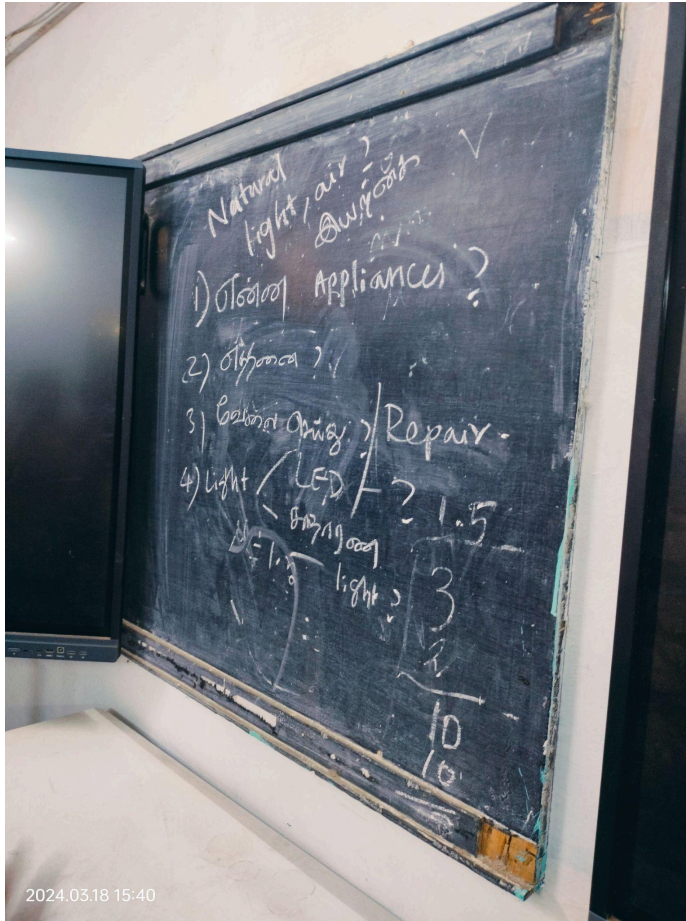 Natural
light, air?
இயற்கை
1) என்ன Appliances?
2) எத்தனை?
3) வேலை செய்து? / Repair.
4) Light LED - ?
சாதாரண
light?
1.5
3
10
10
2024.03.18 15:40